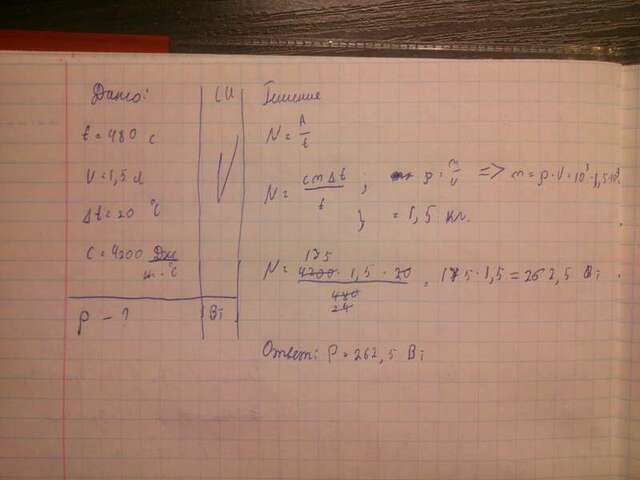 Дано:
t = 480 с
V = 1,5 л
Δt = 20 °C
C = 4200 Дж/кг·°C
P - ?
СИ
Вт
Решение
N = A/t
N = cmΔt/t ; ρ = m/V => m = ρ·V = 10³·1,5·10⁻³
} = 1,5 кг.
N = 4200·1,5·20/480 = 175·1,5 = 262,5 Вт
175
24
Ответ: P = 262,5 Вт